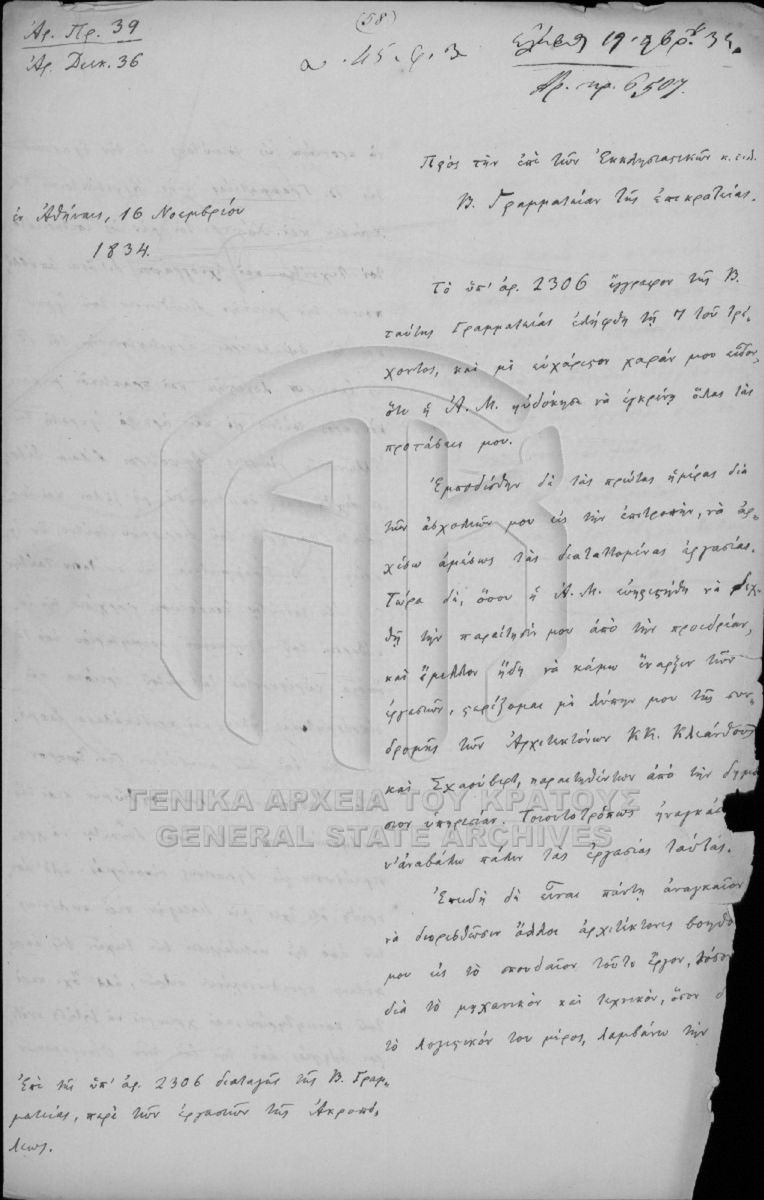 Ἀρ. Πρ. 39
Ἀρ. Διεκ. 36
(58)
α. 45. φ. 3
ἐλήφθη 19 9βρ. 34.
Ἀρ. πρ. 6507.
Πρὸς τὴν ἐπὶ τῶν Ἐκκλησιαστικῶν κ.τ.λ.
Β. Γραμματείαν τῆς ἐπικρατείας.
ἐν Ἀθήναις, 16 Νοεμβρίου
1834.
Τὸ ὑπ' ἀρ. 2306 ἔγγραφον τῆς Β.
ταύτης Γραμματείας ἐλήφθη τῇ 7 τοῦ τρέ-
χοντος, καὶ μὲ εὐχάριστον χαράν μου εἶδον,
ὅτι ἡ Α. Μ. ηὐδόκησε νὰ ἐγκρίνῃ ὅλας τὰς
προτάσεις μου.
Ἐμποδίσθην δὲ τὰς πρώτας ἡμέρας διὰ
τῶν ἀσχολιῶν μου εἰς τὴν ἐπιτροπήν, νὰ ἀρ-
χίσω ἀμέσως τὰς διαταττομένας ἐργασίας.
Τώρα δὲ, ὅσου ἡ Α. Μ. εὐηρεστήθη νὰ δεχ-
θῇ τὴν παραίτησίν μου ἀπὸ τὴν προεδρίαν,
καὶ ἔμελλον ἤδη νὰ κάμω ἔναρξιν τῶν
ἐργασιῶν, στερίζομαι μὲ λύπην μου τῆς συν-
δρομῆς τῶν Ἀρχιτεκτόνων ΚΚ. Κλεάνθους
καὶ Σχάουβερτ, παραιτηθέντων ἀπὸ τὴν δημο
σιον ὑπηρεσίαν. Τοιουτοτρόπως ἠναγκά
ν' ἀναβάλω πάλιν τὰς ἐργασίας ταύτας.
Ἐπειδὴ δὲ εἶναι πάντῃ ἀναγκαῖον
νὰ διορισθῶσιν ἄλλοι ἀρχιτέκτονες βοηθο
μου εἰς τὸ σπουδαῖον τοῦτο ἔργον, τόσον
διὰ τὸ μηχανικὸν καὶ τεχνικὸν, ὅσον δ
τὸ λογιστικόν του μέρος, λαμβάνω τὴν
Ἐπὶ τῆς ὑπ' ἀρ. 2306 διαταγῆς τῆς Β. Γραμ-
ματείας, περὶ τῶν ἐργασιῶν τῆς Ἀκροπό-
λεως.
ΓΕΝΙΚΑ ΑΡΧΕΙΑ ΤΟΥ ΚΡΑΤΟΥΣ
GENERAL STATE ARCHIVES